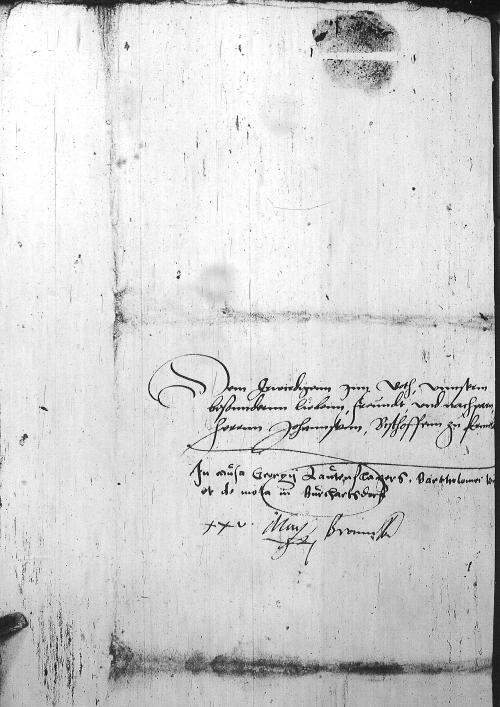 Dem Erwirdigenn Inn Goth, unnserm
besonndernn lieben, freundt, und nachparn,
Herrnn Johannsenn, Bischoffenn zu
In causa Georgij Lautenslagers, Bartholomei
et de mola in Burchartsdorf
xxv. May